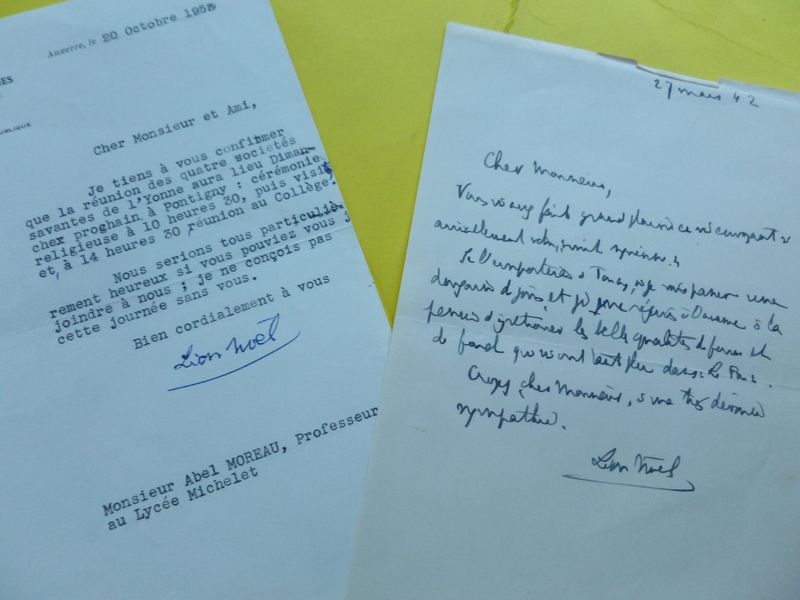 Auxerre, le 20 Octobre 1958
ES
PUBLIQUE
Cher Monsieur et Ami,
Je tiens à vous confirmer
que la réunion des quatre sociétés
savantes de l'Yonne aura lieu Diman-
chex prochain à Pontigny : cérémonie
religieuse à 10 heures 30, puis visite
et, à 14 heures 30 Réunion au Collège.
Nous serions tous particuliè-
rement heureux si vous pouviez vous
joindre à nous ; je ne conçois pas
cette journée sans vous.
Bien cordialement à vous
Léon Noël
Monsieur Abel MOREAU, Professeur
au Lycée Michelet
27 mars 42
Cher Monsieur,
Vous m'avez fait grand plaisir en m'envoyant
amicalement votre
Je l'emporterai à Toucy, où je vais passer une
douzaine de jours et je me réjouis à la
pensée d'y retrouver les belles qualités de forme et
de fond qui
Croyez, cher Monsieur, à ma très dévouée
sympathie.
Léon Noël